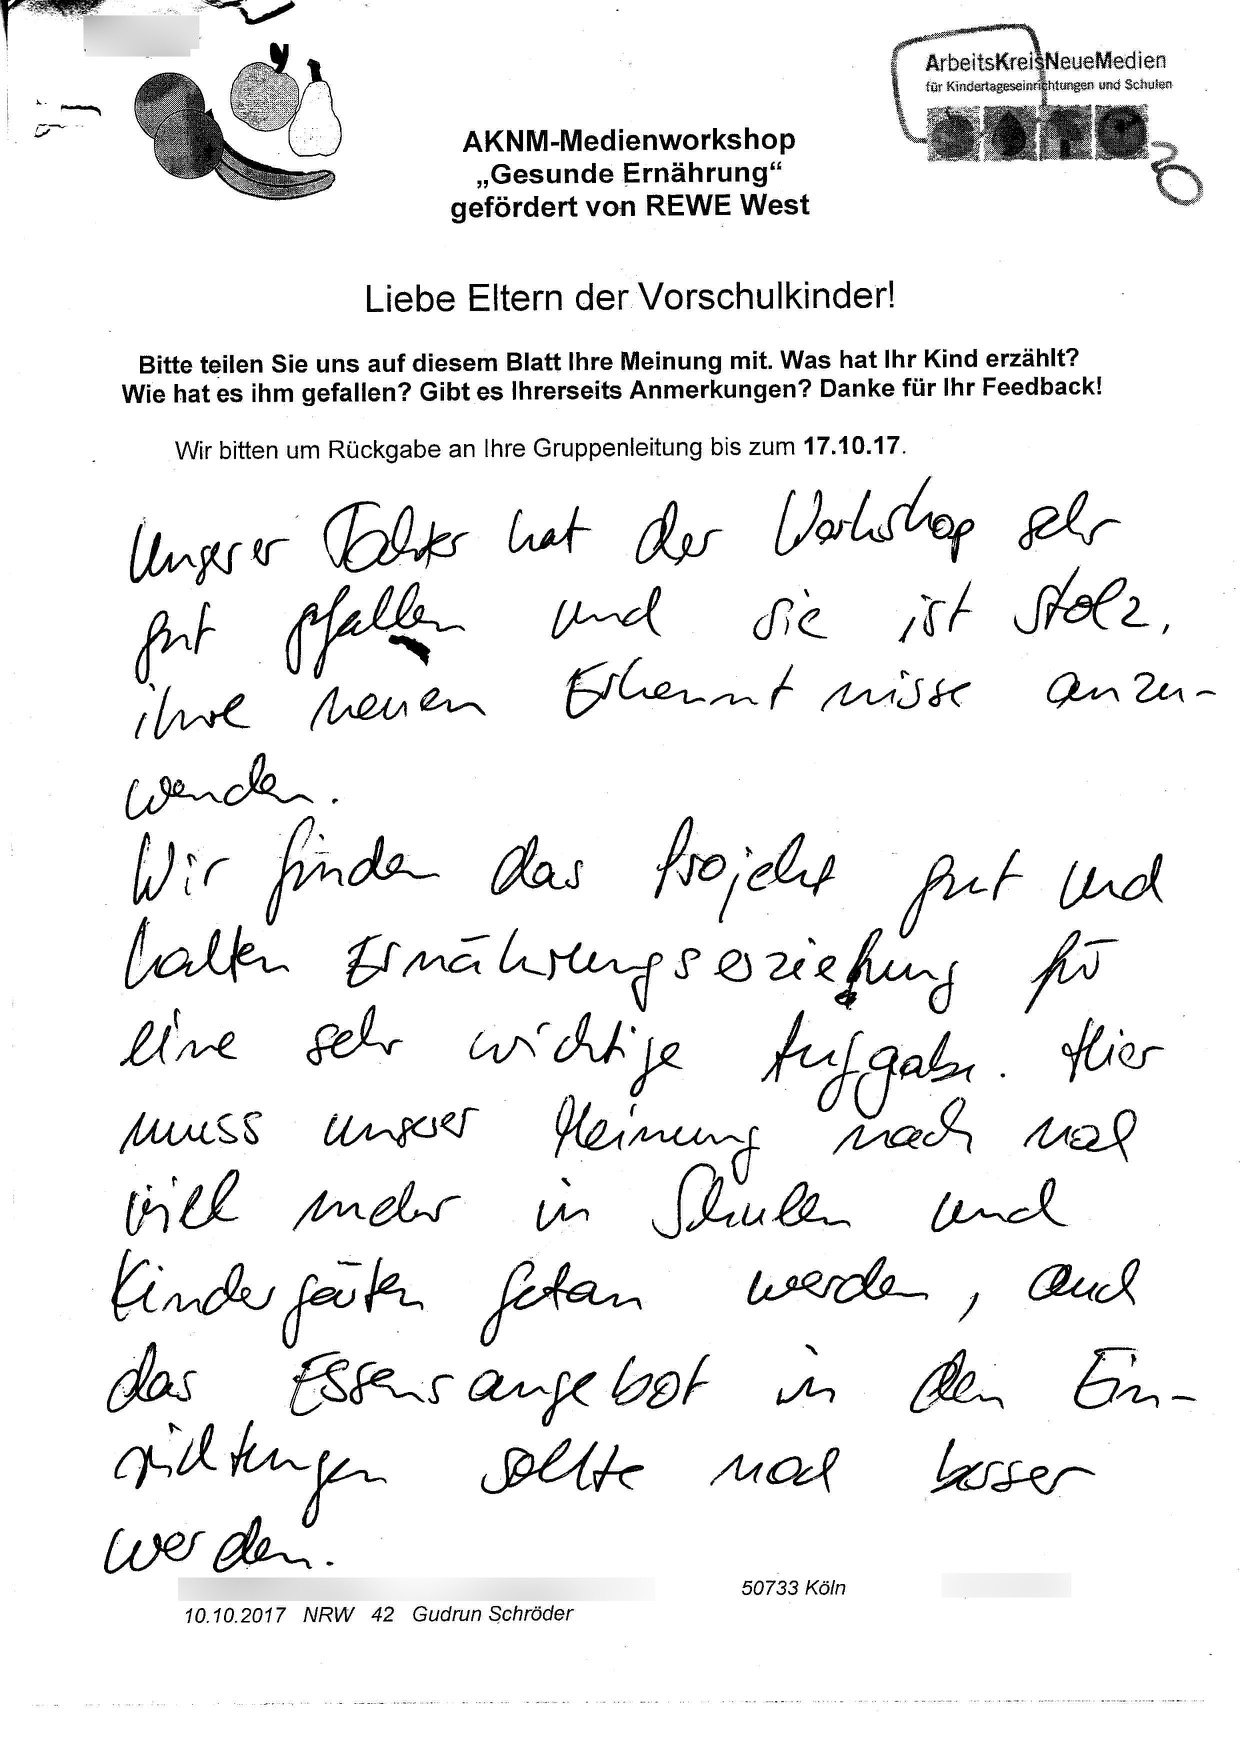 ArbeitsKreisNeueMedien
für Kindertageseinrichtungen und Schulen
AKNM-Medienworkshop
„Gesunde Ernährung“
gefördert von REWE West
Liebe Eltern der Vorschulkinder!
Bitte teilen Sie uns auf diesem Blatt Ihre Meinung mit. Was hat Ihr Kind erzählt?
Wie hat es ihm gefallen? Gibt es Ihrerseits Anmerkungen? Danke für Ihr Feedback!
Wir bitten um Rückgabe an Ihre Gruppenleitung bis zum 17.10.17.
Unserer Tochter hat der Workshop sehr
gut gefallen und sie ist stolz,
ihre neuen Erkenntnisse anzu-
wenden.
Wir finden das Projekt gut und
halten Ernährungserziehung für
eine sehr wichtige Aufgabe. Hier
muss unserer Meinung nach noch
viel mehr in Schulen und
Kindergärten getan werden, auch
das Essensangebot in den Ein-
richtungen sollte noch besser
werden.
50733 Köln
10.10.2017 NRW 42 Gudrun Schröder